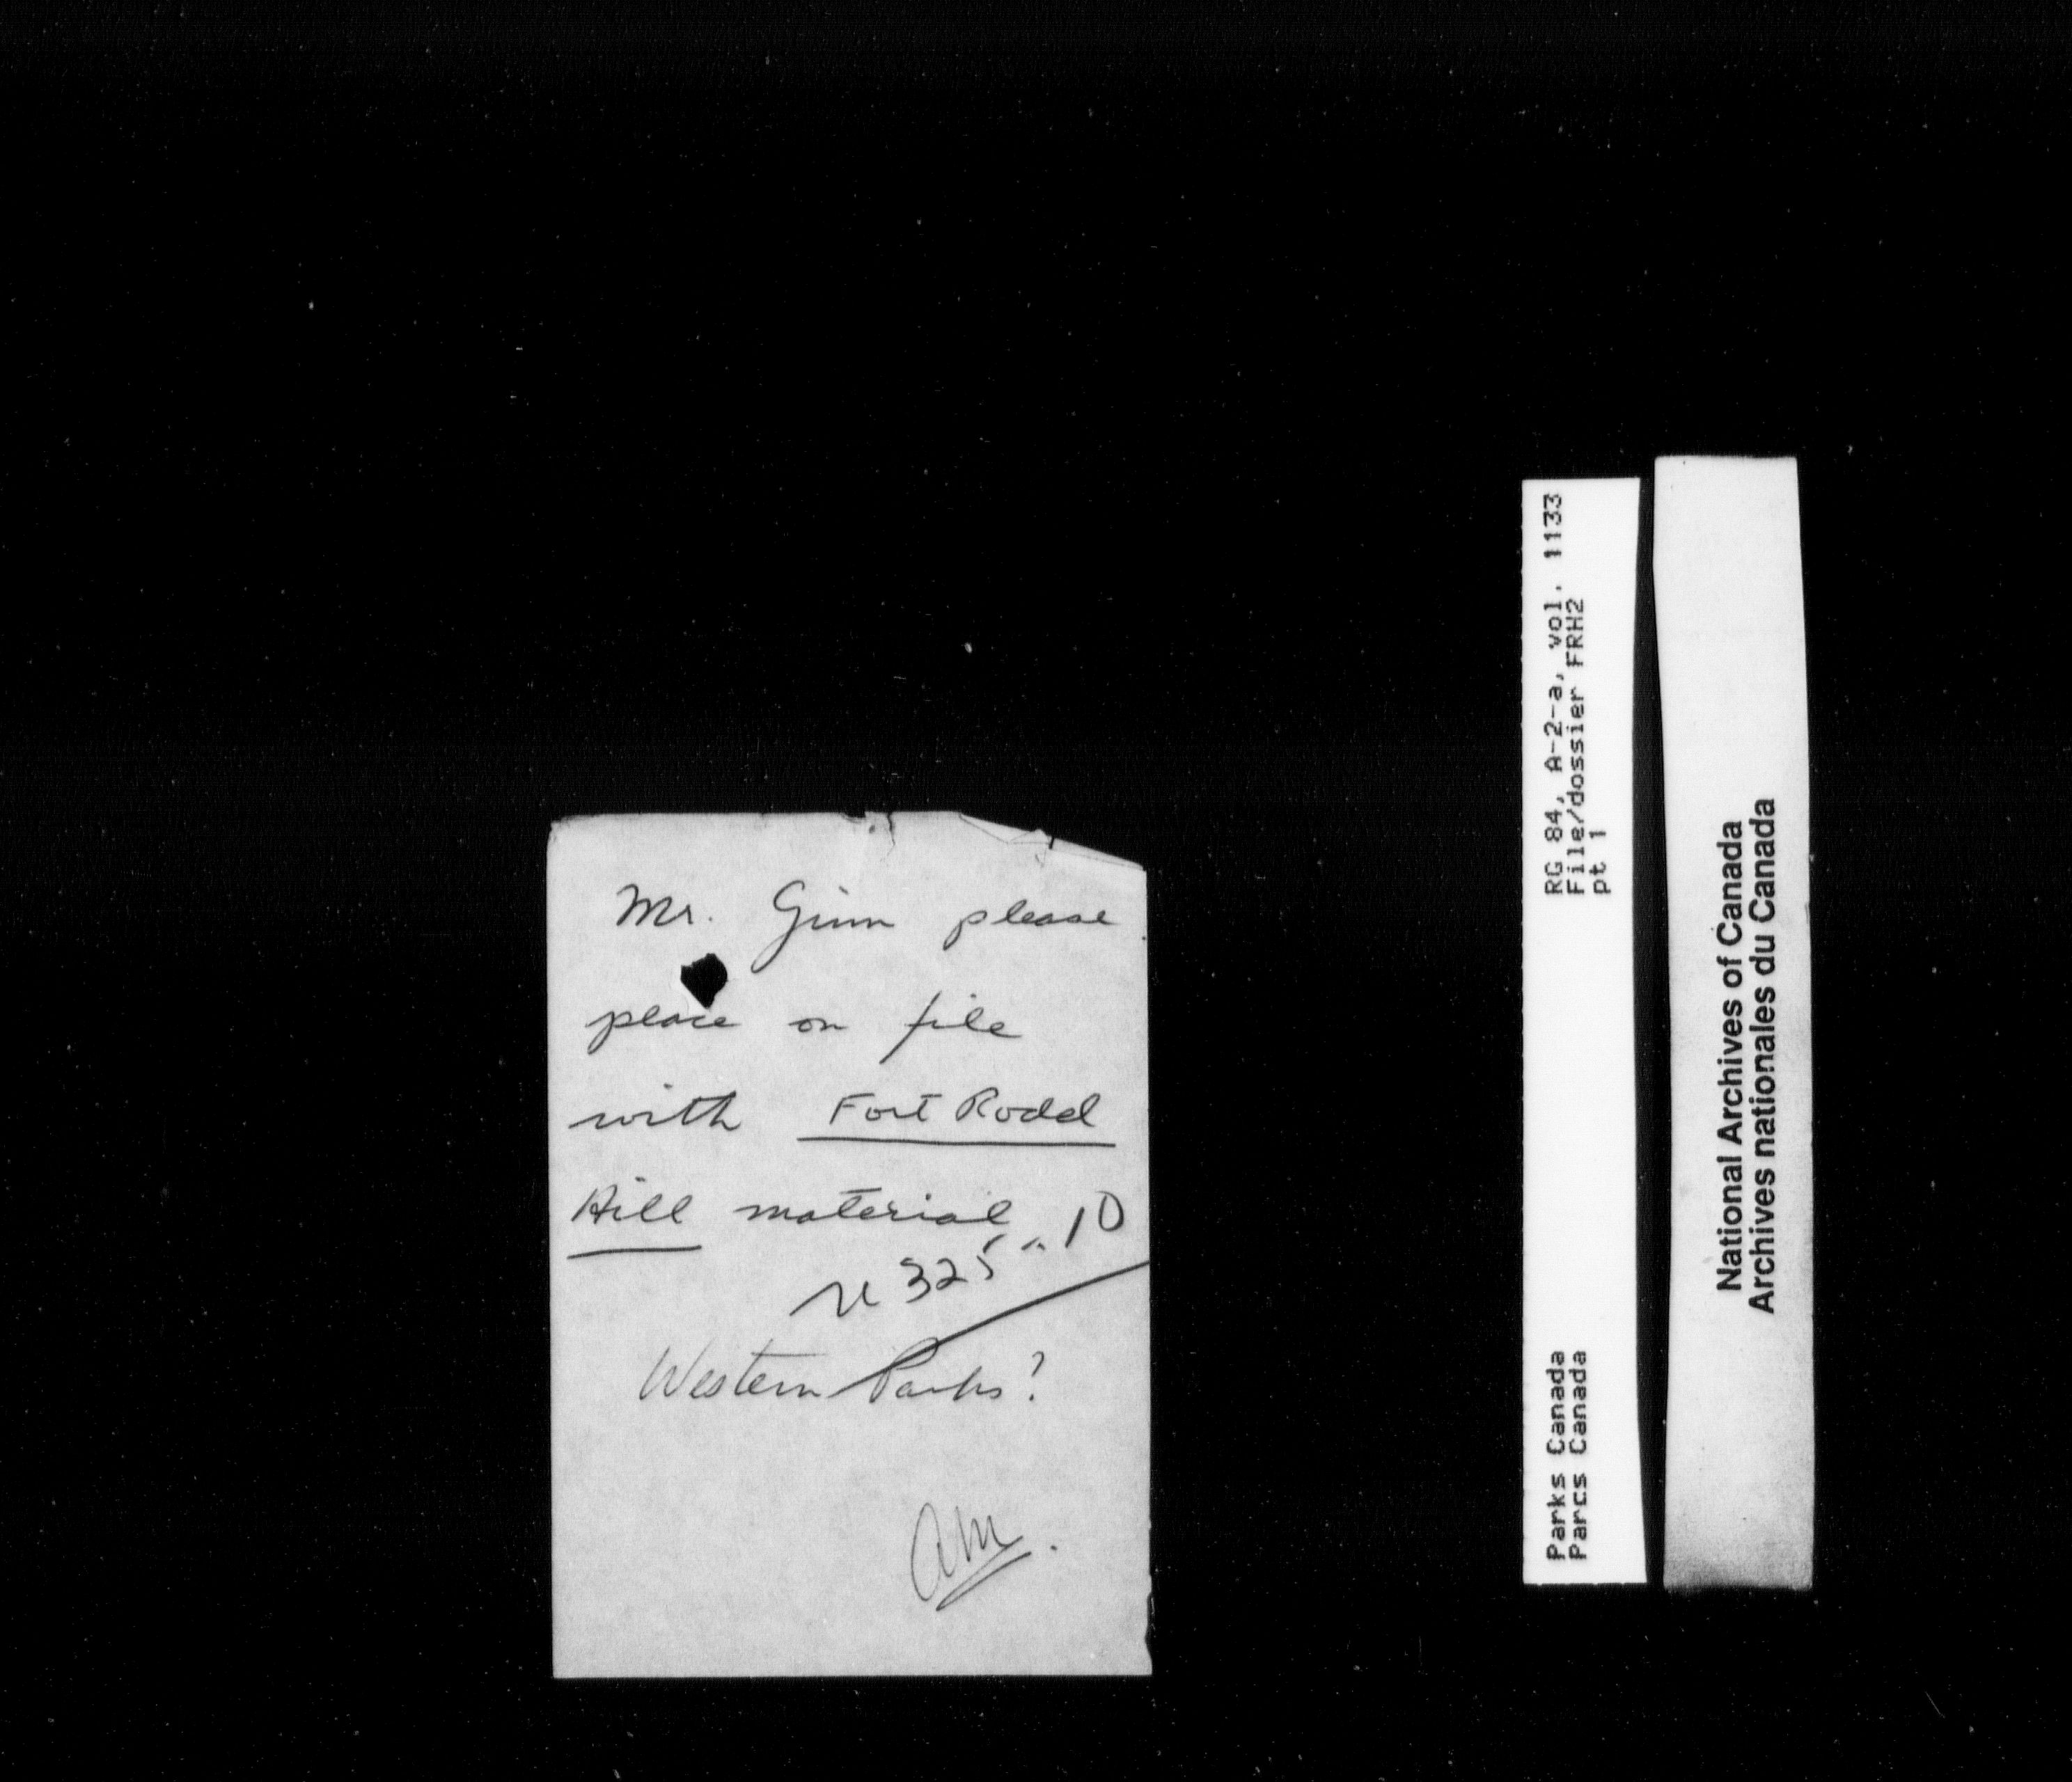 Mr. Ginn please
place on file
with Fort Rodd
Hill material
325-10
Western Parks?
am.
RG 84, A-2-a, vol. 1133
File/dossier FRH2
pt 1
Parks Canada
Parcs Canada
National Archives of Canada
Archives nationales du Canada